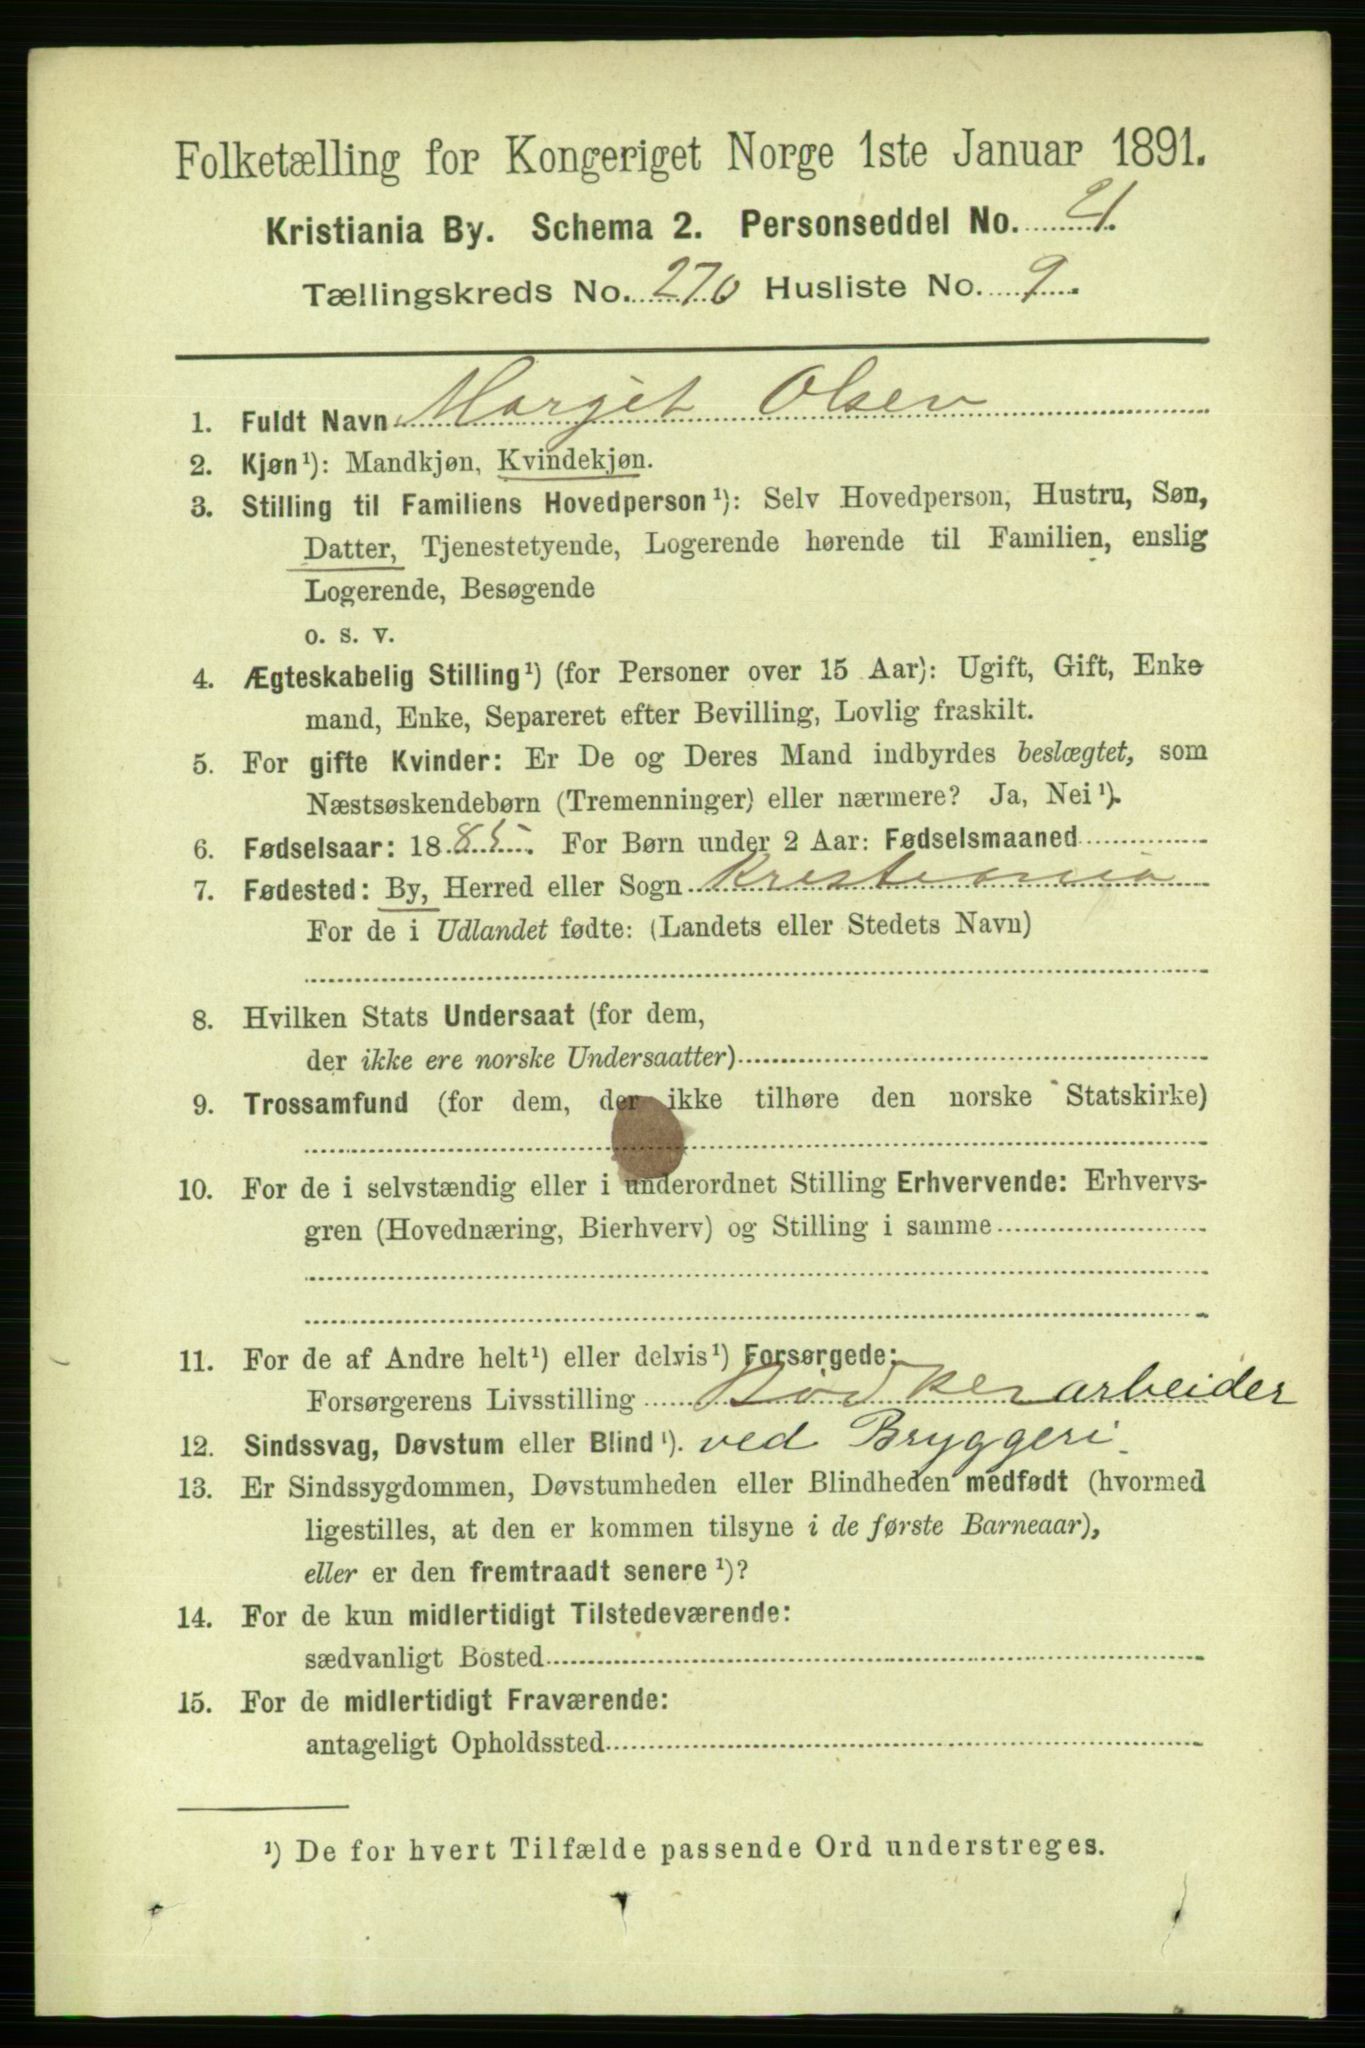 Folketælling for Kongeriget Norge 1ste Januar 1891.
Kristiania By. Schema 2. Personseddel No. 21.
Tællingskreds No. 270 Husliste No. 9.
1. Fuldt Navn Margit Olsen
2. Kjøn¹): Mandkjøn, Kvindekjøn.
3. Stilling til Familiens Hovedperson¹): Selv Hovedperson, Hustru, Søn,
Datter, Tjenestetyende, Logerende hørende til Familien, enslig
Logerende, Besøgende
o. s. v.
4. Ægteskabelig Stilling¹) (for Personer over 15 Aar): Ugift, Gift, Enke-
mand, Enke, Separeret efter Bevilling, Lovlig fraskilt.
5. For gifte Kvinder: Er De og Deres Mand indbyrdes beslægtet, som
Næstsøskendebørn (Tremenninger) eller nærmere? Ja, Nei¹).
6. Fødselsaar: 1885. For Børn under 2 Aar: Fødselsmaaned
7. Fødested: By, Herred eller Sogn Kristiania
For de i Udlandet fødte: (Landets eller Stedets Navn)
8. Hvilken Stats Undersaat (for dem,
der ikke ere norske Undersaatter)
9. Trossamfund (for dem, der ikke tilhøre den norske Statskirke)
10. For de i selvstændig eller i underordnet Stilling Erhvervende: Erhvervs-
gren (Hovednæring, Bierhverv) og Stilling i samme
11. For de af Andre helt¹) eller delvis¹) Forsørgede:
Forsørgerens Livsstilling Bødkerarbeider
12. Sindssvag, Døvstum eller Blind¹). ved Bryggeri.
13. Er Sindssygdommen, Døvstumheden eller Blindheden medfødt (hvormed
ligestilles, at den er kommen tilsyne i de første Barneaar),
eller er den fremtraadt senere¹)?
14. For de kun midlertidigt Tilstedeværende:
sædvanligt Bosted
15. For de midlertidigt Fraværende:
antageligt Opholdssted
¹) De for hvert Tilfælde passende Ord understreges.